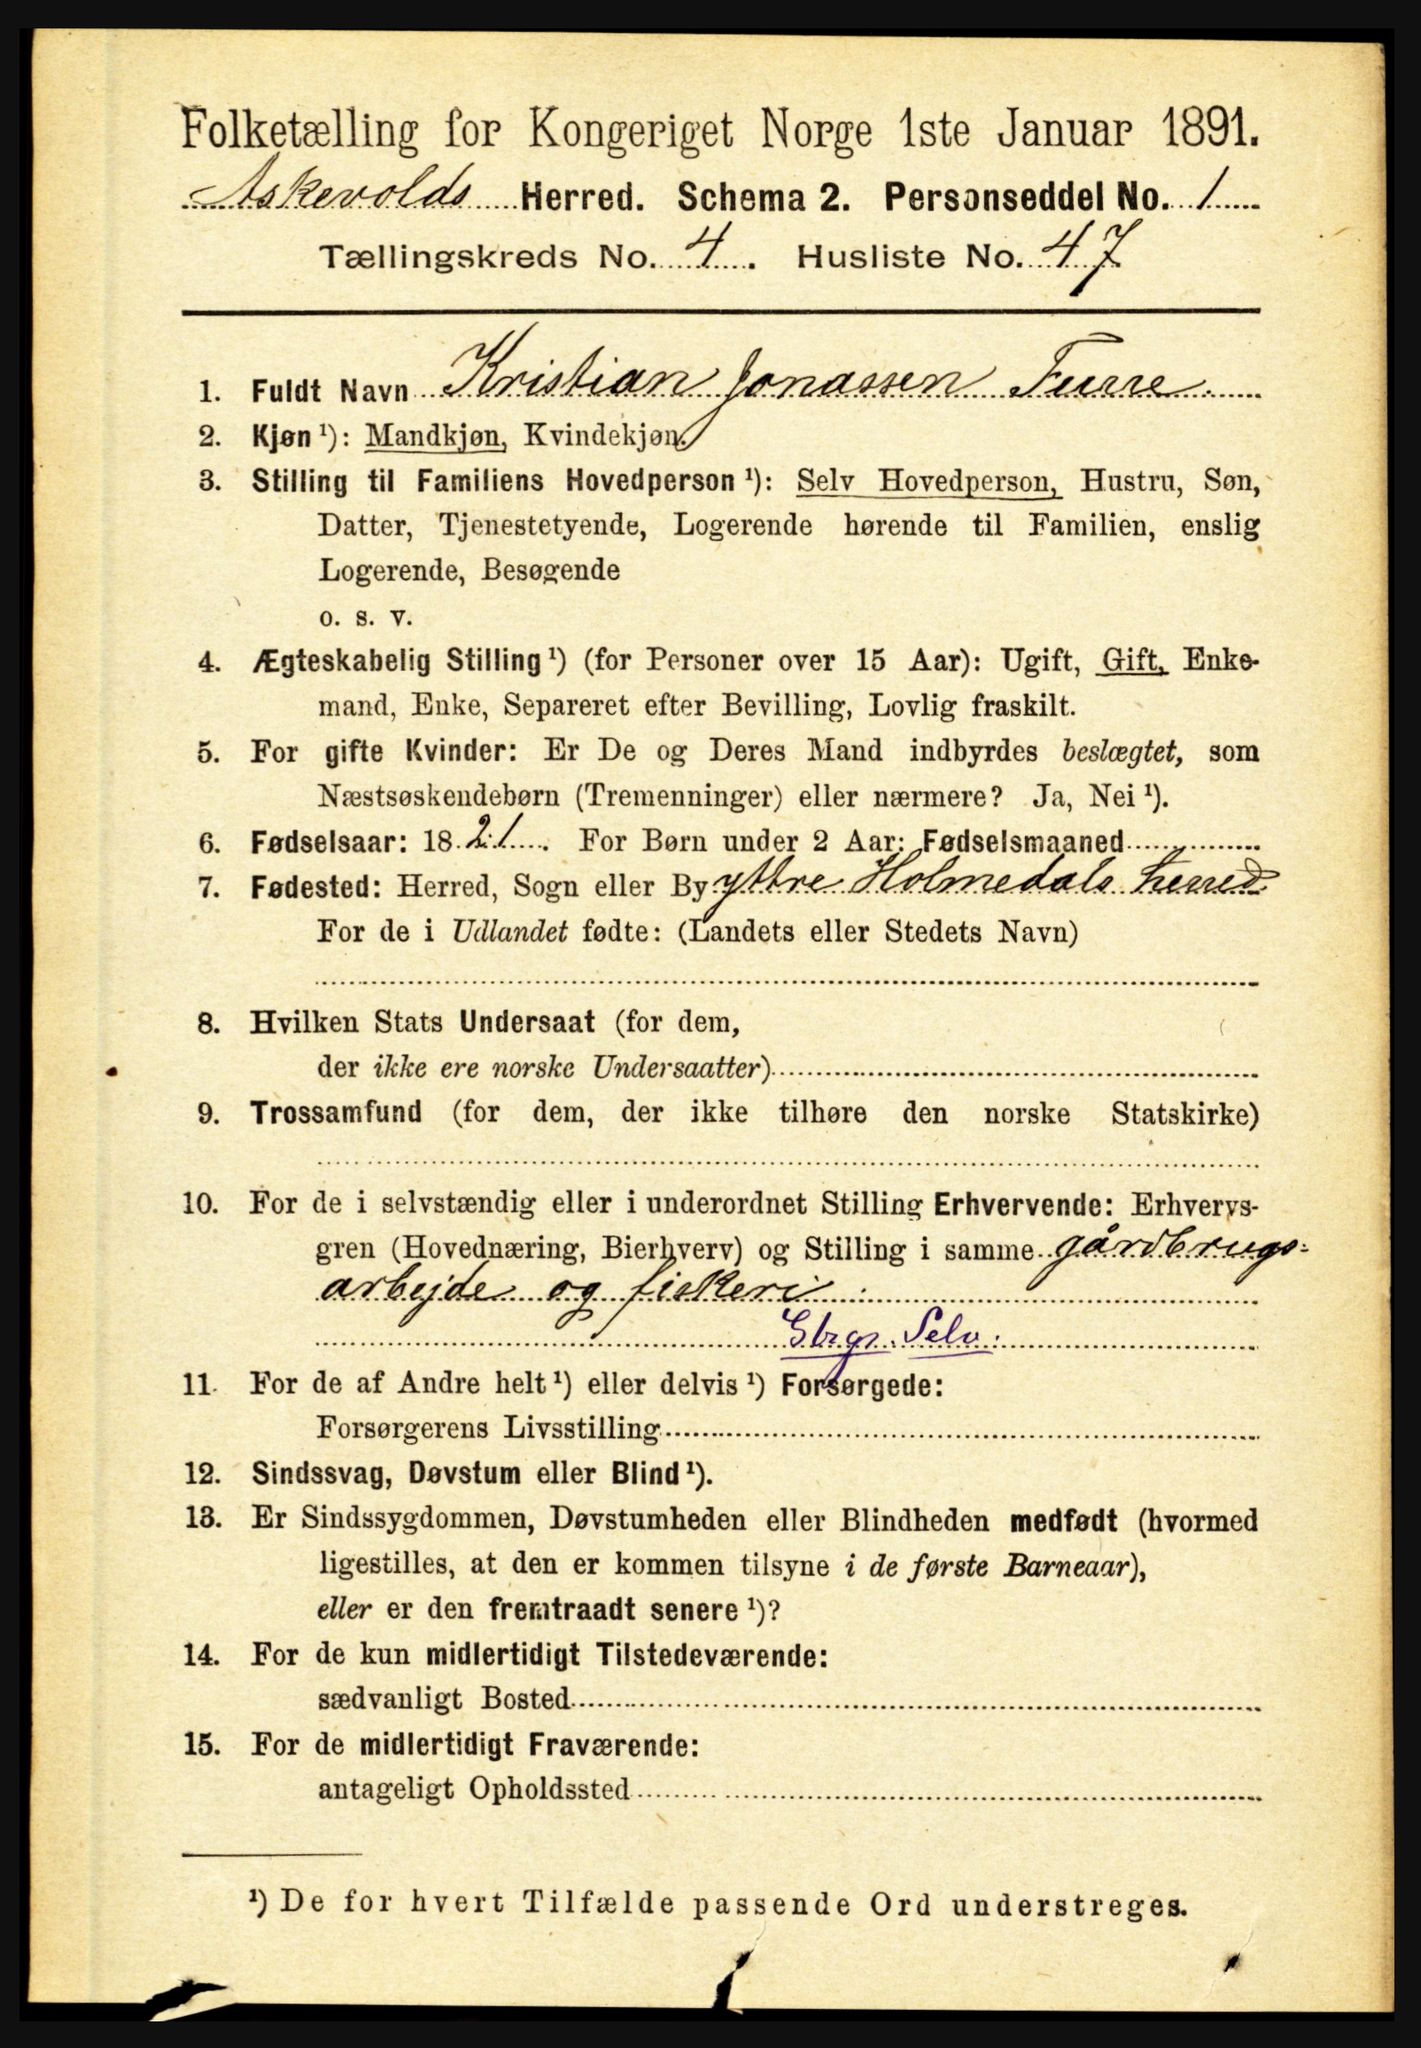 Folketælling for Kongeriget Norge 1ste Januar 1891.
Askevolds Herred. Schema 2. Personseddel No. 1
Tællingskreds No. 4. Husliste No. 47
1. Fuldt Navn Kristian Jonassen Furre
2. Kjøn ¹): Mandkjøn, Kvindekjøn.
3. Stilling til Familiens Hovedperson ¹): Selv Hovedperson, Hustru, Søn,
Datter, Tjenestetyende, Logerende hørende til Familien, enslig
Logerende, Besøgende
o. s. v.
4. Ægteskabelig Stilling ¹) (for Personer over 15 Aar): Ugift, Gift, Enke-
mand, Enke, Separeret efter Bevilling, Lovlig fraskilt.
5. For gifte Kvinder: Er De og Deres Mand indbyrdes beslægtet, som
Næstsøskendebørn (Tremenninger) eller nærmere? Ja, Nei ¹).
6. Fødselsaar: 1821. For Børn under 2 Aar: Fødselsmaaned
7. Fødested: Herred, Sogn eller By yttre Holmedals herred
For de i Udlandet fødte: (Landets eller Stedets Navn)
8. Hvilken Stats Undersaat (for dem,
der ikke ere norske Undersaatter)
9. Trossamfund (for dem, der ikke tilhøre den norske Statskirke)
10. For de i selvstændig eller i underordnet Stilling Erhvervende: Erhvervs-
gren (Hovednæring, Bierhverv) og Stilling i samme gårdbrugs-
arbejde og fiskeri
Gbgr. Selv.
11. For de af Andre helt ¹) eller delvis ¹) Forsørgede:
Forsørgerens Livsstilling
12. Sindssvag, Døvstum eller Blind ¹).
13. Er Sindssygdommen, Døvstumheden eller Blindheden medfødt (hvormed
ligestilles, at den er kommen tilsyne i de første Barneaar),
eller er den fremtraadt senere ¹)?
14. For de kun midlertidigt Tilstedeværende:
sædvanligt Bosted
15. For de midlertidigt Fraværende:
antageligt Opholdssted
¹) De for hvert Tilfælde passende Ord understreges.